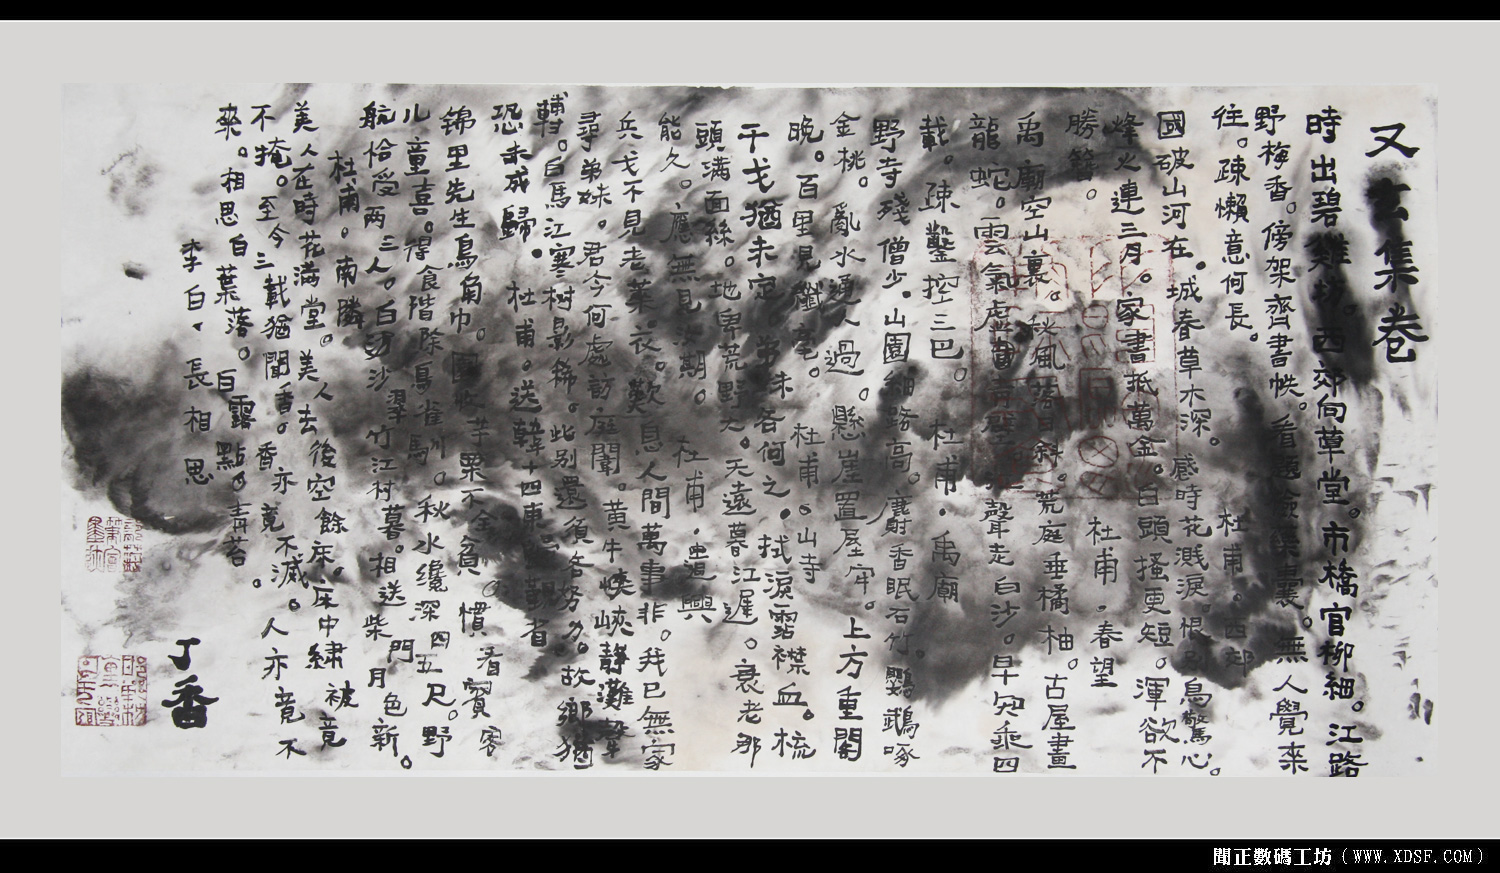 又玄集卷
時出碧雞坊。西郊向草堂。市橋官柳細。江路
野梅香。傍架齊書帙。看題檢藥囊。無人覺來
往。疎懶意何長。
杜甫·西郊
國破山河在。城春草木深。感時花濺淚。恨別鳥驚心。
烽火連三月。家書抵萬金。白頭搔更短。渾欲不
勝簪。
杜甫·春望
禹廟空山裏。秋風落日斜。荒庭垂橘柚。古屋畫
龍蛇。雲氣虛青壁。聲走白沙。早知乘四
載。疎鑿控三巴。
杜甫·禹廟
野寺殘僧少。山園細路高。麝香眠石竹。鸚鵡啄
金桃。亂水通人過。懸崖置屋牢。上方重閣
晚。百里見纖毫。
杜甫。山寺
干戈猶未定。弟妹各何之。拭淚霑襟血。梳
頭滿面絲。地卑荒野大。天遠暮江遲。衰老那
能久。應無見汝期。
杜甫·遣興
兵戈不見老萊衣。歎息人間萬事非。我已無家
尋弟妹。君今何處訪庭闈。黃牛峽靜灘聲
轉。白馬江寒樹影稀。此別還須各努力。故鄉猶
恐未成歸。
杜甫。送韓十四東歸覲省
錦里先生烏角巾。園收芋栗不全貧。慣看賓客
兒童喜。得食階除鳥雀馴。秋水纔深四五尺。野
航恰受兩三人。白沙翠竹江村暮。相送柴門月色新。
杜甫·南隣
美人在時花滿堂。美人去後空餘床。床中繡被竟
不掩。至今三載猶聞香。香亦竟不滅。人亦竟不
來。相思白葉落。白露點青苔。
李白·長相思
丁香
聞正數碼工坊（WWW.XDSF.COM）